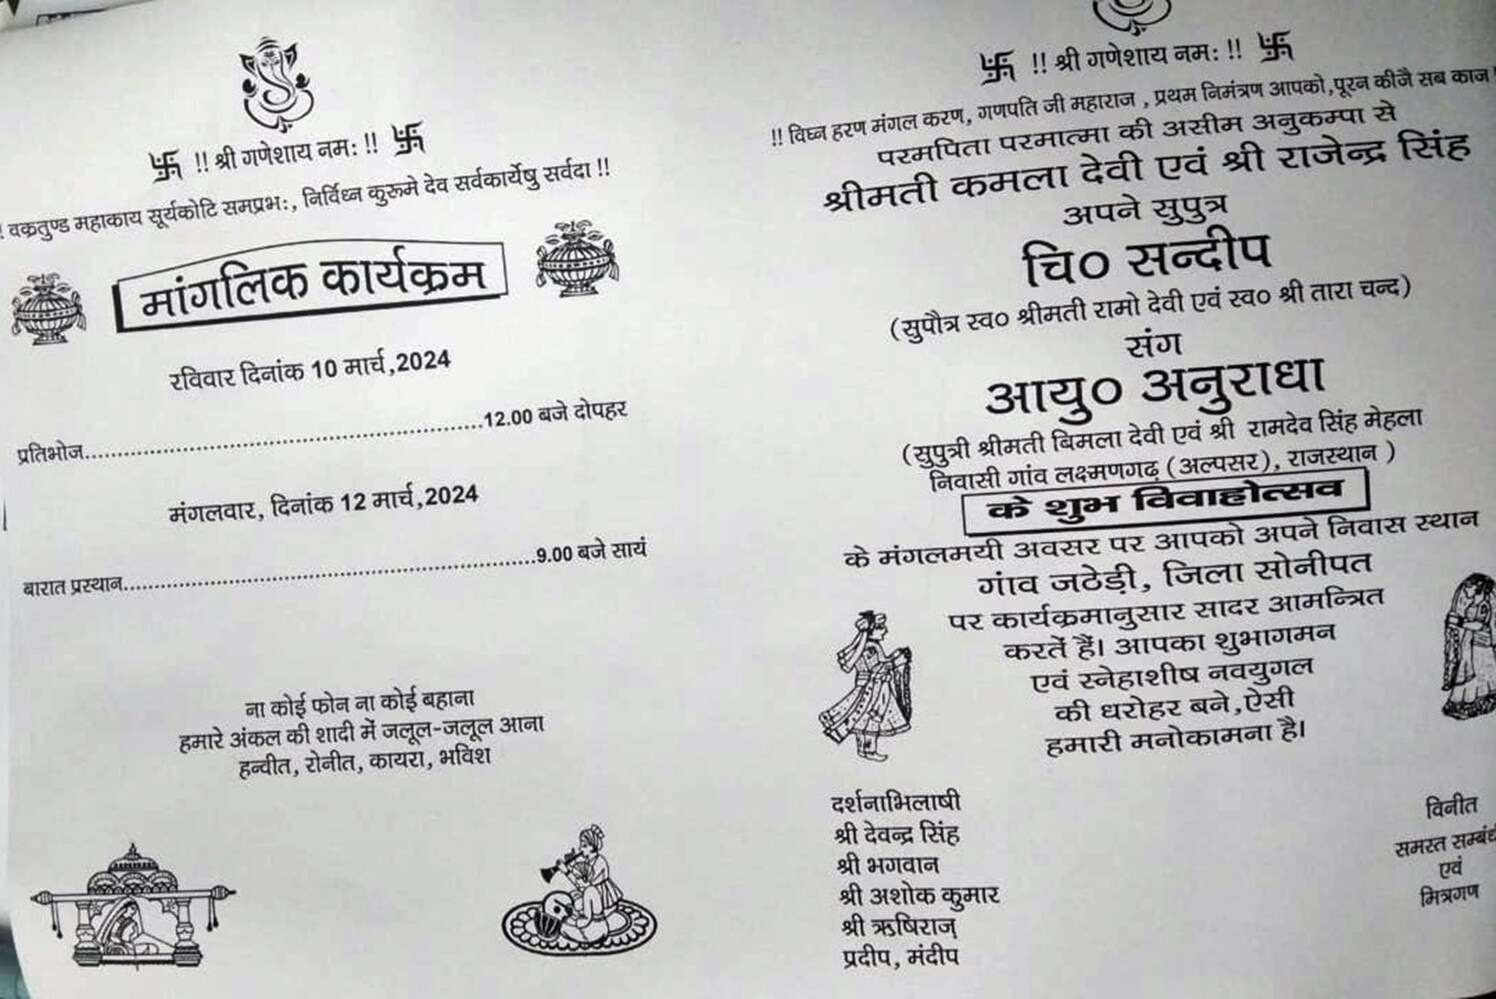 !! श्री गणेशाय नमः !!
! वक्रतुण्ड महाकाय सूर्यकोटि समप्रभः, निर्विघ्न कुरूमे देव सर्वकार्येषु सर्वदा !!
मांगलिक कार्यक्रम
रविवार दिनांक 10 मार्च,2024
प्रतिभोज....................................................12.00 बजे दोपहर
मंगलवार, दिनांक 12 मार्च,2024
बारात प्रस्थान....................................................9.00 बजे सायं
ना कोई फोन ना कोई बहाना
हमारे अंकल की शादी में जलूल-जलूल आना
हन्वीत, रोनीत, कायरा, भविश
!! श्री गणेशाय नमः !!
!! विघ्न हरण मंगल करण, गणपति जी महाराज , प्रथम निमंत्रण आपको,पूरन कीजै सब काज !
परमपिता परमात्मा की असीम अनुकम्पा से
श्रीमती कमला देवी एवं श्री राजेन्द्र सिंह
अपने सुपुत्र
चि० सन्दीप
(सुपौत्र स्व० श्रीमती रामो देवी एवं स्व० श्री तारा चन्द)
संग
आयु० अनुराधा
(सुपुत्री श्रीमती बिमला देवी एवं श्री रामदेव सिंह मेहला
निवासी गांव लक्ष्मणगढ़ (अल्पसर), राजस्थान )
के शुभ विवाहोत्सव
के मंगलमयी अवसर पर आपको अपने निवास स्थान
गांव जठेड़ी, जिला सोनीपत
पर कार्यक्रमानुसार सादर आमन्त्रित
करतें हैं। आपका शुभागमन
एवं स्नेहाशीष नवयुगल
की धरोहर बने,ऐसी
हमारी मनोकामना है।
दर्शनाभिलाषी
श्री देवन्द्र सिंह
श्री भगवान
श्री अशोक कुमार
श्री ऋषिराज
प्रदीप, मंदीप
विनीत
समस्त
एवं
मित्रगण